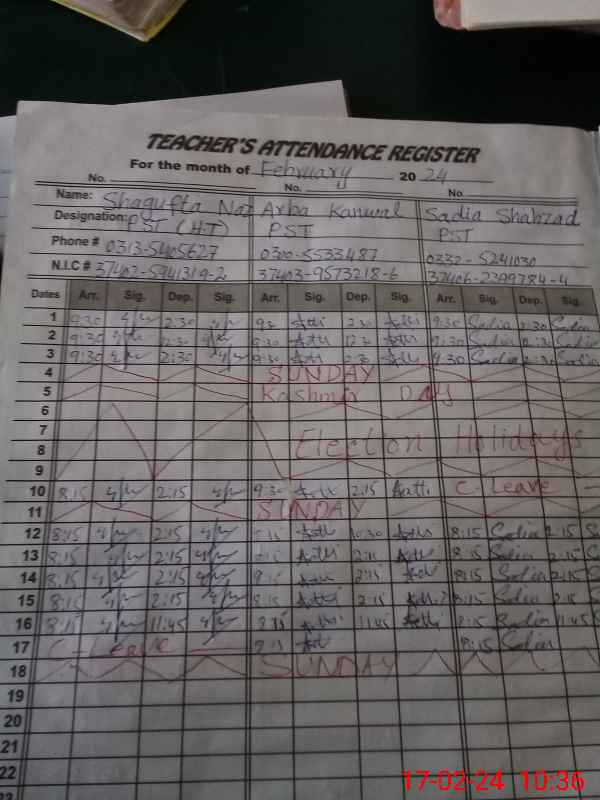 TEACHER'S ATTENDANCE REGISTER
For the month of February 20 24
No. No. No
Name: Shagufta Naz Arba Kanwal Sadia Shahzad
Designation: PST (H.T) PST PST
Phone # 0313-5405627 0300-5533487 0332-5241030
N.I.C # 37402-5941319-2 37403-9573218-6 37406-2399784-4
Dates Arr. Sig. Dep. Sig. Arr. Sig. Dep. Sig. Arr. Sig. Dep. Sig.
1 9:30 2:30 9:30 Sadia 2:30 Sadia
2 9:30 2:30 9:30 9:30 Sadia 2:30 Sadia
3 9:30 2:30 9:30 2:30 9:30 Sadia 2:30 Sadia
4 SUNDAY
5 Kashmir DAY
6
7
8 Election Holidays
9
10 8:15 2:15 9:30 2:15 C Leave
11 SUNDAY
12 8:15 2:15 10:30 8:15 Sadia 2:15
13 8:15 2:15 2:15 8:15 Sadia 2:15
14 8:15 2:15 2:15 8:15 Sadia 2:15
15 8:15 2:15 8:15 2:15 8:15 Sadia 2:15
16 8:15 11:45 8:15 11:45 8:15 Sadia 11:45
17 C-Leave 8:15 8:15 Sadia
18 SUNDAY
19
20
21
22
23
17-02-24 10:36